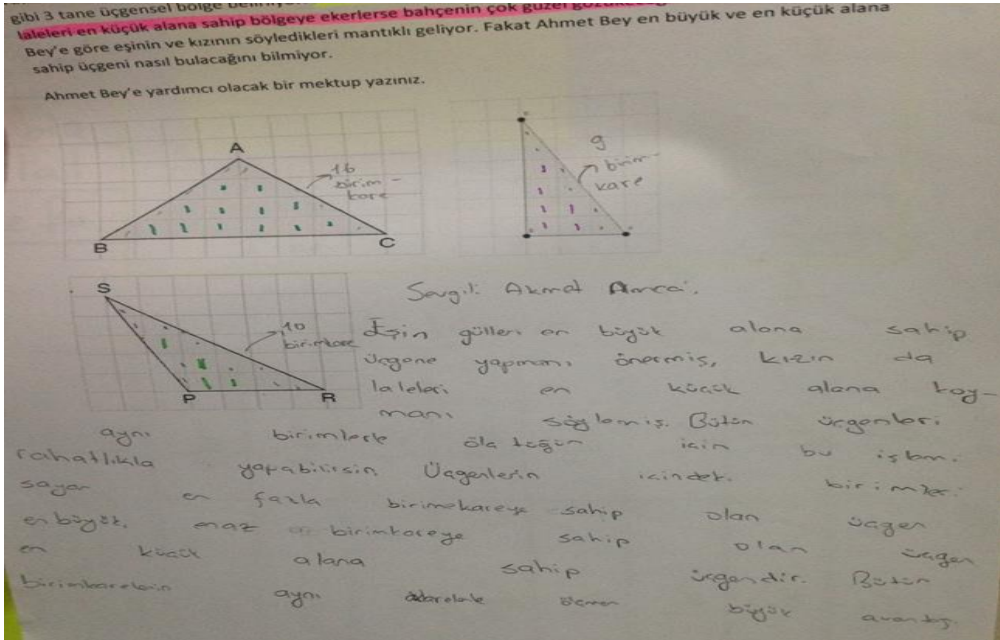 gibi 3 tane üçgensel bölge
laleleri en küçük alana sahip bölgeye ekerlerse bahçenin çok güzel
Bey'e göre eşinin ve kızının söyledikleri mantıklı geliyor. Fakat Ahmet Bey en büyük ve en küçük alana
sahip üçgeni nasıl bulacağını bilmiyor.
Ahmet Bey'e yardımcı olacak bir mektup yazınız.
A
16
birim-
kare
B
C
9
birim-
kare
S
10
birimkare
P
R
Sevgili Ahmet Amca.
Eşin gülleri en büyük alana sahip
üçgene yapmanı önermiş, kızın da
laleleri en küçük alana koy-
manı söylemiş. Bütün üçgenleri
aynı birimlerle için bu işlemi
rahatlıkla yapabilirsin. Üçgenlerin içindeki birimleri
sayar en fazla birimkareye sahip olan üçgen
en büyük, en az birimkareye sahip olan üçgen
en küçük alana sahip üçgendir. Bütün
birimkarelerin aynı büyük avantaj